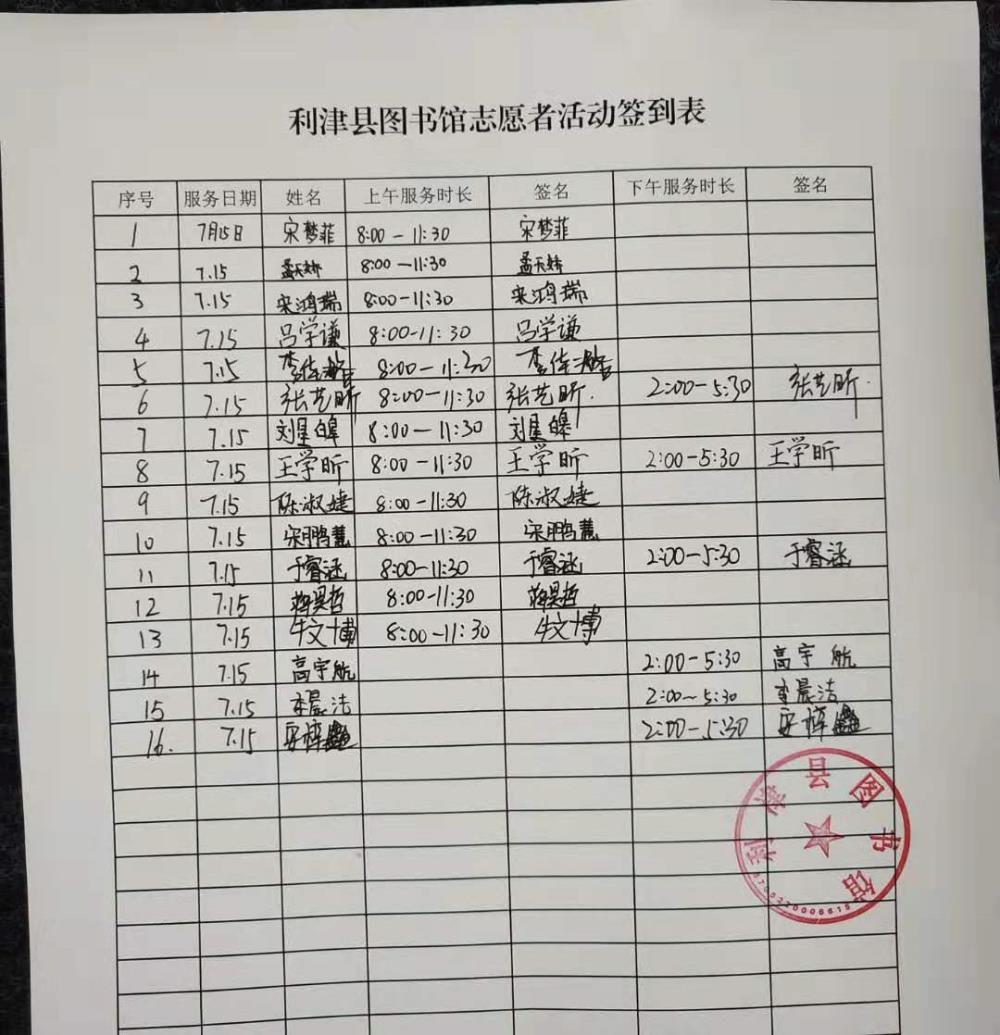 利津县图书馆志愿者活动签到表
序号 服务日期 姓名 上午服务时长 签名 下午服务时长 签名
1 7月15日 宋梦菲 8:00-11:30 宋梦菲
2 7.15 孟天娇 8:00-11:30 孟天娇
3 7.15 宋鸿瑞 8:00-11:30 宋鸿瑞
4 7.15 吕学谦 8:00-11:30 吕学谦
5 7.15 李佳 8:00-11:30 李佳
6 7.15 张艺昕 8:00-11:30 张艺昕. 2:00-5:30 张艺昕.
7 7.15 刘星皞 8:00-11:30 刘星皞
8 7.15 王学昕 8:00-11:30 王学昕 2:00-5:30 王学昕
9 7.15 陈淑婕 8:00-11:30 陈淑婕
10 7.15 宋鹏慧 8:00-11:30 宋鹏慧
11 7.15 于睿涵 8:00-11:30 于睿涵 2:00-5:30 于睿涵
12 7.15 蒋昊哲 8:00-11:30 蒋昊哲
13 7.15 牛文博 8:00-11:30 牛文博
14 7.15 高宇航 2:00-5:30 高宇航
15 7.15 李晨洁 2:00~5:30 李晨洁
16. 7.15 安梓鑫 2:00-5:30 安梓鑫
利津县图书馆